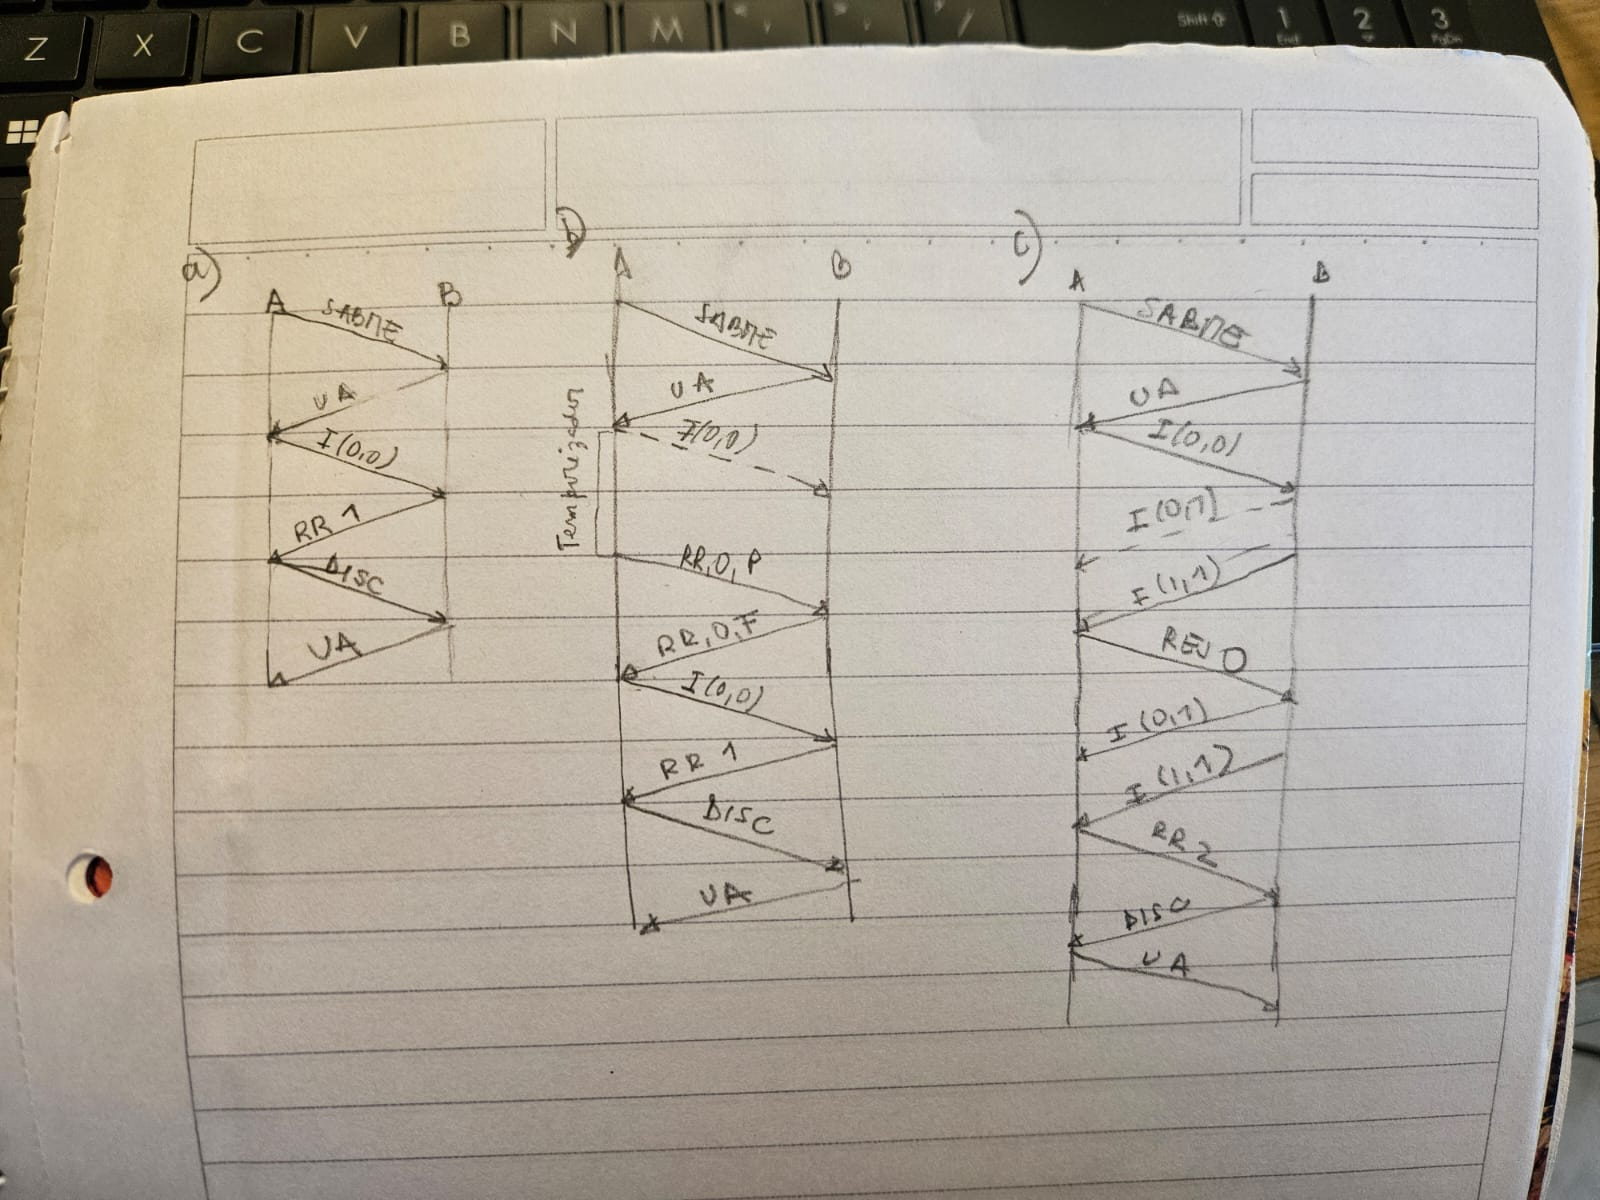 Z X C V B N M < , > . ? / Shift ⇧ 1 End 2 3 PgDn
a)
A B
SABME
UA
I(0,0)
RR 1
DISC
UA
b)
A B
SABME
UA
I(0,0)
Temporizador
RR,0,P
RR,0,F
I(0,0)
RR 1
DISC
UA
c)
A B
SABME
UA
I(0,0)
I(0,1)
I(1,1)
REJ 0
I(0,1)
I(1,1)
RR 2
DISC
UA